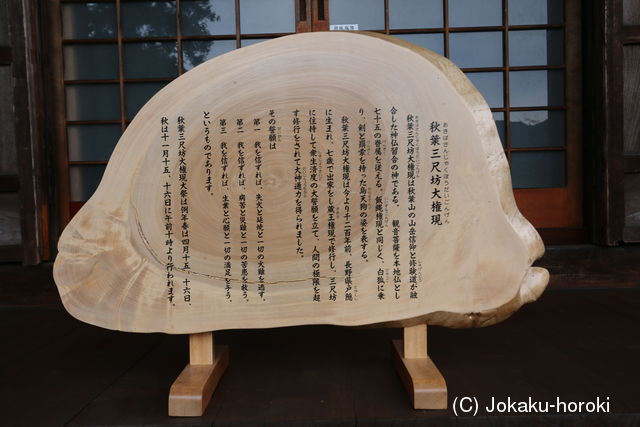 秋葉三尺坊大権現
あきばさんじゃくぼうだいごんげん
秋葉三尺坊大権現は秋葉山の山岳信仰と修験道が融
合した神仏習合の神である。 観音菩薩を本地仏とし
七十五の眷属を従える。飯縄権現と同じく、白狐に乗
り、剣と羂索を持った烏天狗の姿を表する。
秋葉三尺坊大権現は今より千二百年前、長野県戸隠
に生まれ、七歳で出家をし蔵王権現で修行し、三尺坊
に住持して衆生済度の大誓願を立て、人間の極限を超
す修行をされて大神通力を得られました。
その誓願は
第一 我を信ずれば、失火と延焼と一切の火難を逃す。
第二 我を信ずれば、病苦と災難と一切の苦患を救う。
第三 我を信ずれば、生業と心願と一切の満足を与う。
というものであります。
秋葉三尺坊大権現大祭は例年春は四月十五、十六日、
秋は十一月十五、十六日に午前十時より行われます。
(C) Jokaku-horoki